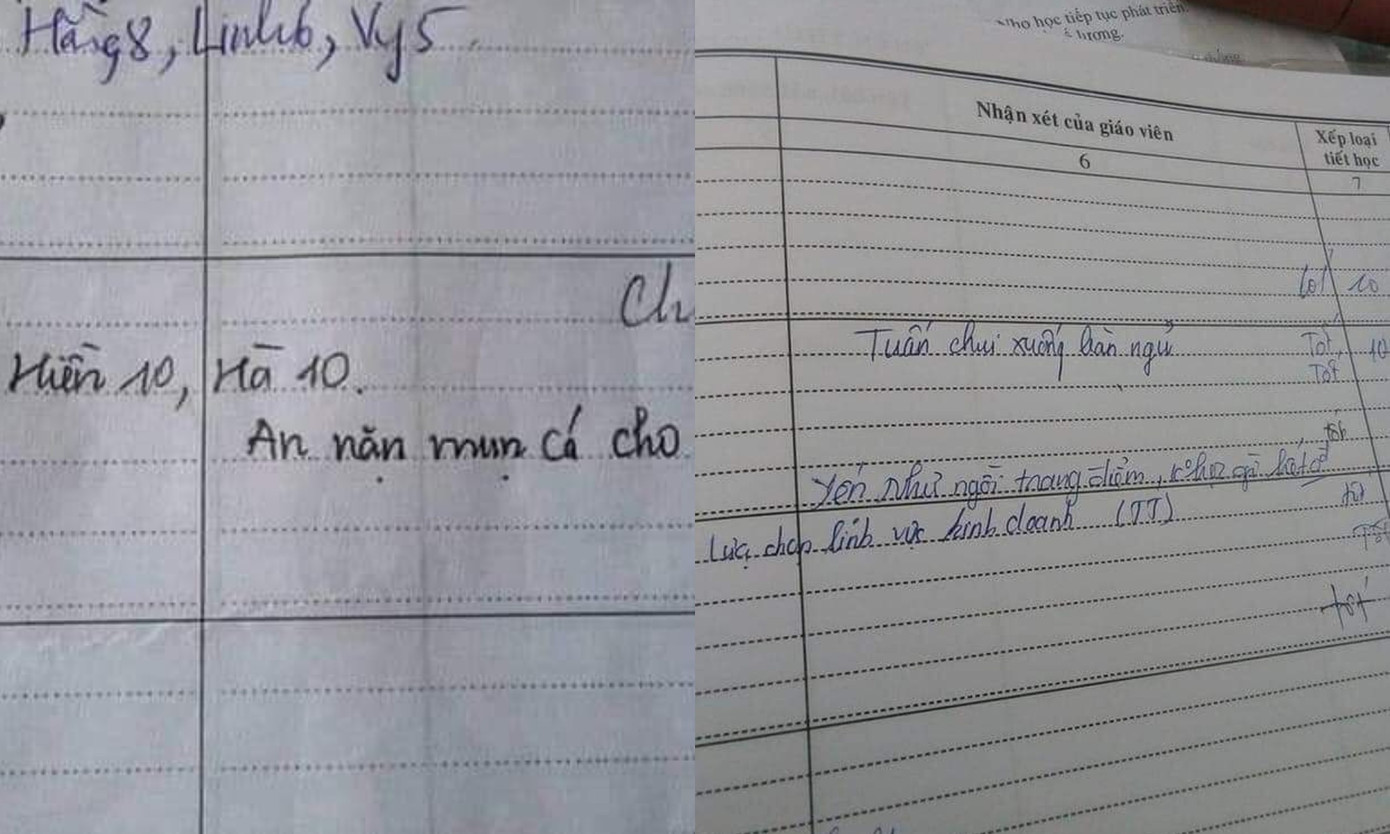 Hằng 8, Linh 6, Vy 5.
Ch
Hiền 10, Hà 10.
An nặn mụn cá cho
Nho học tiếp tục phát triển.
Nhận xét của giáo viên
Xếp loại tiết học
6
7
10
Tuấn chui xuống bàn ngủ
Tốt 10
Tốt
tốt
Yến Như ngồi trang điểm,
Lựa chọn lĩnh vực kinh doanh (TT)
Tốt
tốt